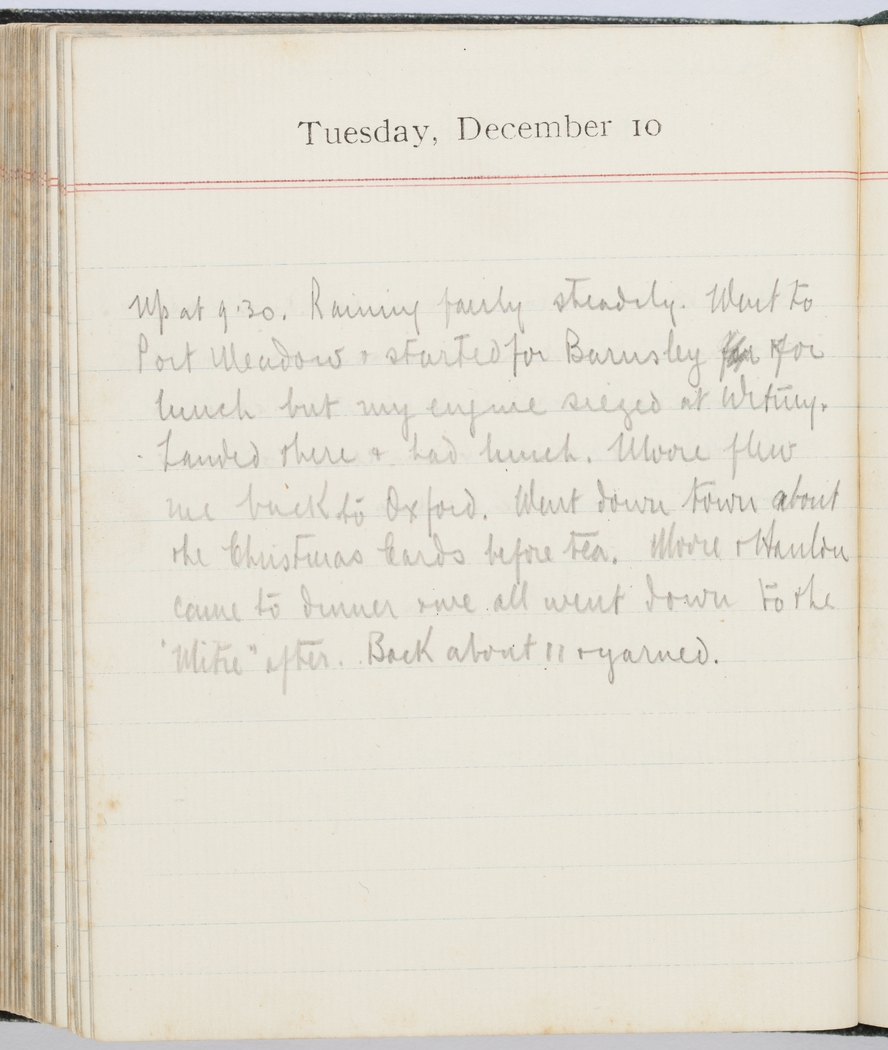 Tuesday, December 10
Up at 9.30. Raining fairly steadily. Went to
Port Meadow & started for Barnsley for
lunch but my engine siezed at Witney.
Landed there & had lunch. Moore flew
me back to Oxford. Went down town about
the Christmas Cards before tea. Moore & Hanlon
came to dinner & we all went down to the
"Mitre" after. Back about 11 & yarned.